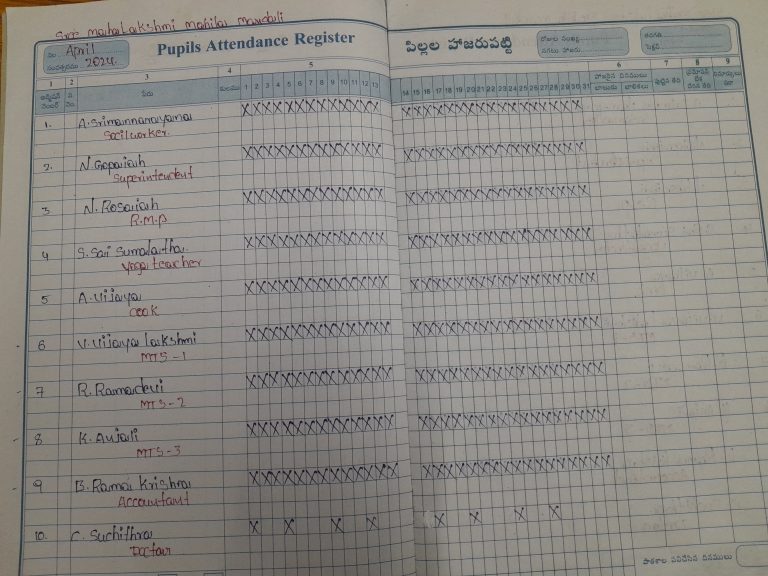 Sree mahalakshmi mahila mandali
నెల April
సంవత్సరము 2024.
Pupils Attendance Register
పిల్లల హాజరుపట్టి
రోజుల సంఖ్య
సగటు హాజరు
తరగతి
సెక్షన్
1 2 3 4 5 6 7 8 9
అడ్మిషన్ నెంబర్
వ. నెం.
పేరు
కులము
1 2 3 4 5 6 7 8 9 10 11 12 13
14 15 16 17 18 19 20 21 22 23 24 25 26 27 28 29 30 31
హాజరైన దినములు
బాలుడు బాలికలు
పుట్టిన తేది
1. A. Srimannarayana XXXXXXXXXXXXX XXXXXXXXXXXXXXXXX
Socilworker.
2. N. Gopaiah XXXXXXXXXXXXX XXXXXXXXXXXXXXXXX
Superintendent
3 N. Rosaiah XXXXXXXXXXXXX XXXXXXXXXXXXXXXXX
R.M.P
4 S. Sai Sumalatha. XXXXXXXXXXXXX XXXXXXXXXXXXXXXXX
Yoga teacher
5 A. Vijaya XXXXXXXXXXXXX XXXXXXXXXXXXXXXXX
COOK
6 V. Vijaya lakshmi XXXXXXXXXXXXX XXXXXXXXXXXXXXXXX
MTS-1
7 R. Ramadevi XXXXXXXXXXXXX XXXXXXXXXXXXXXXXX
MTS-2
8 K. Anjali XXXXXXXXXXXXX XXXXXXXXXXXXXXXXX
MTS-3
9 B. Rama Krishna XXXXXXXXXXXXX XXXXXXXXXXXXXXXXX
Accountant
10. C. Suchithra X X X X X X X X
Doctour
పాఠశాల పనిచేసిన దినములు